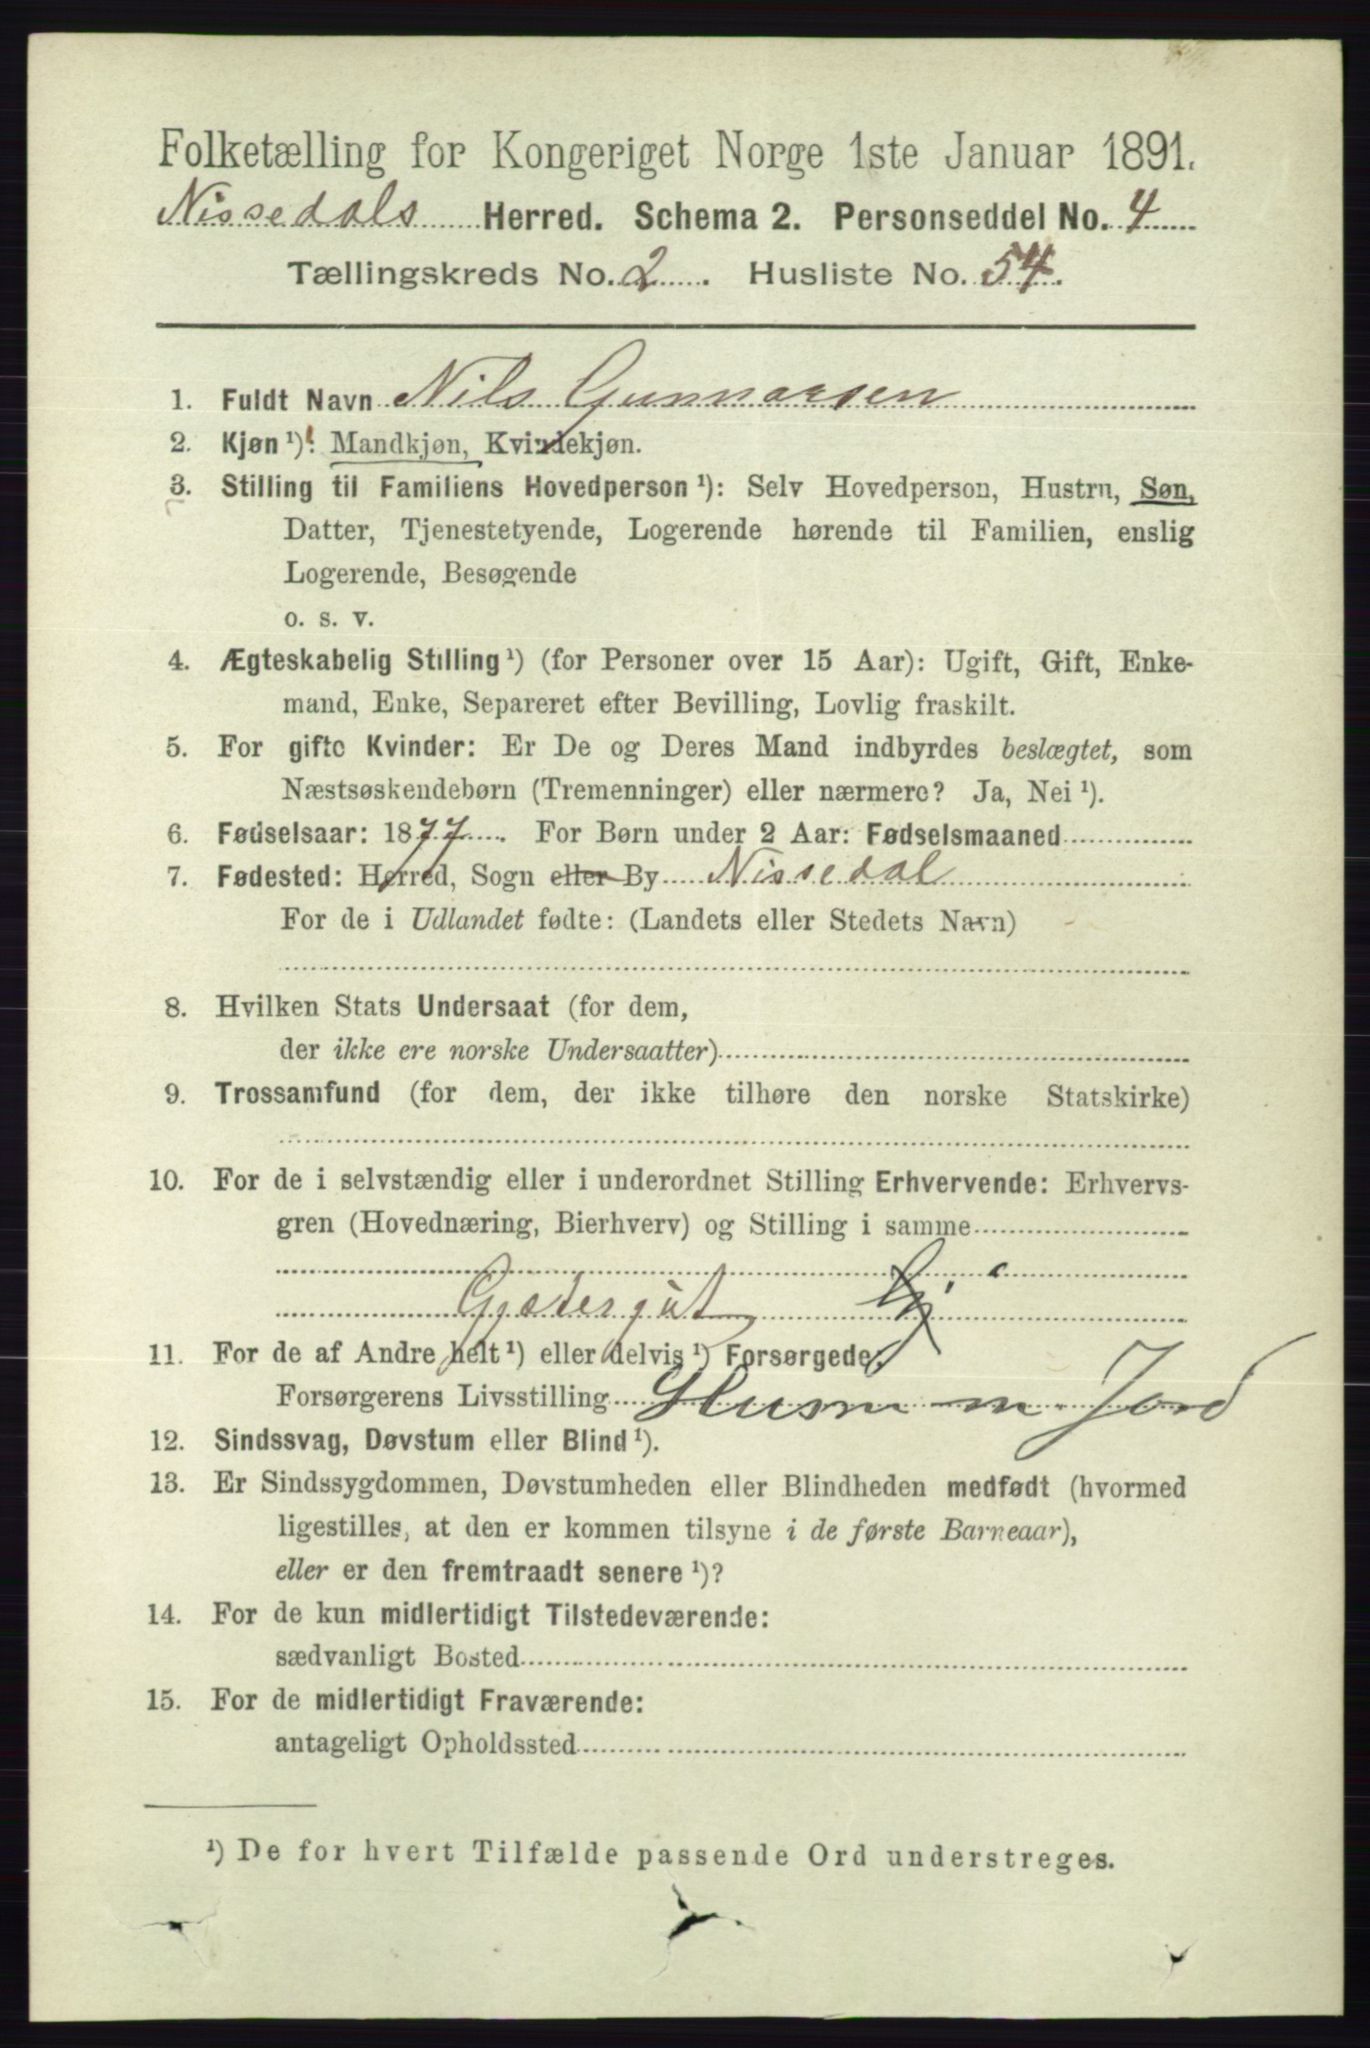 Folketælling for Kongeriget Norge 1ste Januar 1891.
Nissedals Herred. Schema 2. Personseddel No. 4
Tællingskreds No. 2. Husliste No. 54.
1. Fuldt Navn Nils Gunnarsen
2. Kjøn ¹): Mandkjøn, Kvindekjøn.
3. Stilling til Familiens Hovedperson ¹): Selv Hovedperson, Hustru, Søn,
Datter, Tjenestetyende, Logerende hørende til Familien, enslig
Logerende, Besøgende
o. s. v.
4. Ægteskabelig Stilling ¹) (for Personer over 15 Aar): Ugift, Gift, Enke-
mand, Enke, Separeret efter Bevilling, Lovlig fraskilt.
5. For gifte Kvinder: Er De og Deres Mand indbyrdes beslægtet, som
Næstsøskendebørn (Tremenninger) eller nærmere? Ja, Nei ¹).
6. Fødselsaar: 1877. For Børn under 2 Aar: Fødselsmaaned
7. Fødested: Herred, Sogn eller By Nissedal
For de i Udlandet fødte: (Landets eller Stedets Navn)
8. Hvilken Stats Undersaat (for dem,
der ikke ere norske Undersaatter)
9. Trossamfund (for dem, der ikke tilhøre den norske Statskirke)
10. For de i selvstændig eller i underordnet Stilling Erhvervende: Erhvervs-
gren (Hovednæring, Bierhverv) og Stilling i samme
Gjætergut
11. For de af Andre helt ¹) eller delvis ¹) Forsørgede:
Forsørgerens Livsstilling Husm m. Jord
12. Sindssvag, Døvstum eller Blind ¹).
13. Er Sindssygdommen, Døvstumheden eller Blindheden medfødt (hvormed
ligestilles, at den er kommen tilsyne i de første Barneaar),
eller er den fremtraadt senere ¹)?
14. For de kun midlertidigt Tilstedeværende:
sædvanligt Bosted
15. For de midlertidigt Fraværende:
antageligt Opholdssted
¹) De for hvert Tilfælde passende Ord understreges.